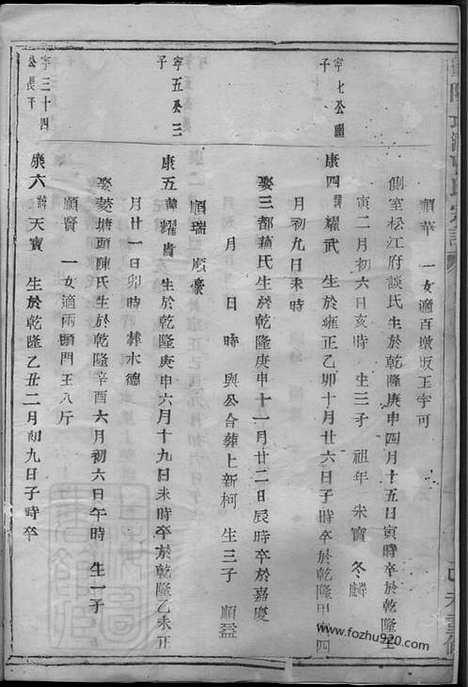 順華 一女適百墩坂王宇可
側室松江府談氏生於乾隆庚申四月十五日寅時卒於乾隆
寅二月初六日亥時 生三子 祖年 朱寶 冬麟
宇七公
康四 諱耀武 生於雍正乙卯十月廿六日子時卒於乾隆甲 四
月初九日未時
娶三都 氏生於乾隆庚申十一月廿二日辰時卒於嘉慶
月 日 時 與公合葬上新柯 生三子 順益
順瑞 順豪
宇五公三
子
康五 諱耀貴 生於乾隆庚申六月十九日未時卒於乾隆乙未正
月廿一日卯時 葬水德
娶菱塘頭陳氏生於乾隆辛酉六月初六日午時 生一子
順賢 一女適兩頭門王八斤
宇三十四
公長子
康六 諱天寶 生於乾隆乙丑二月初九日子時卒
www.fozhu920.com